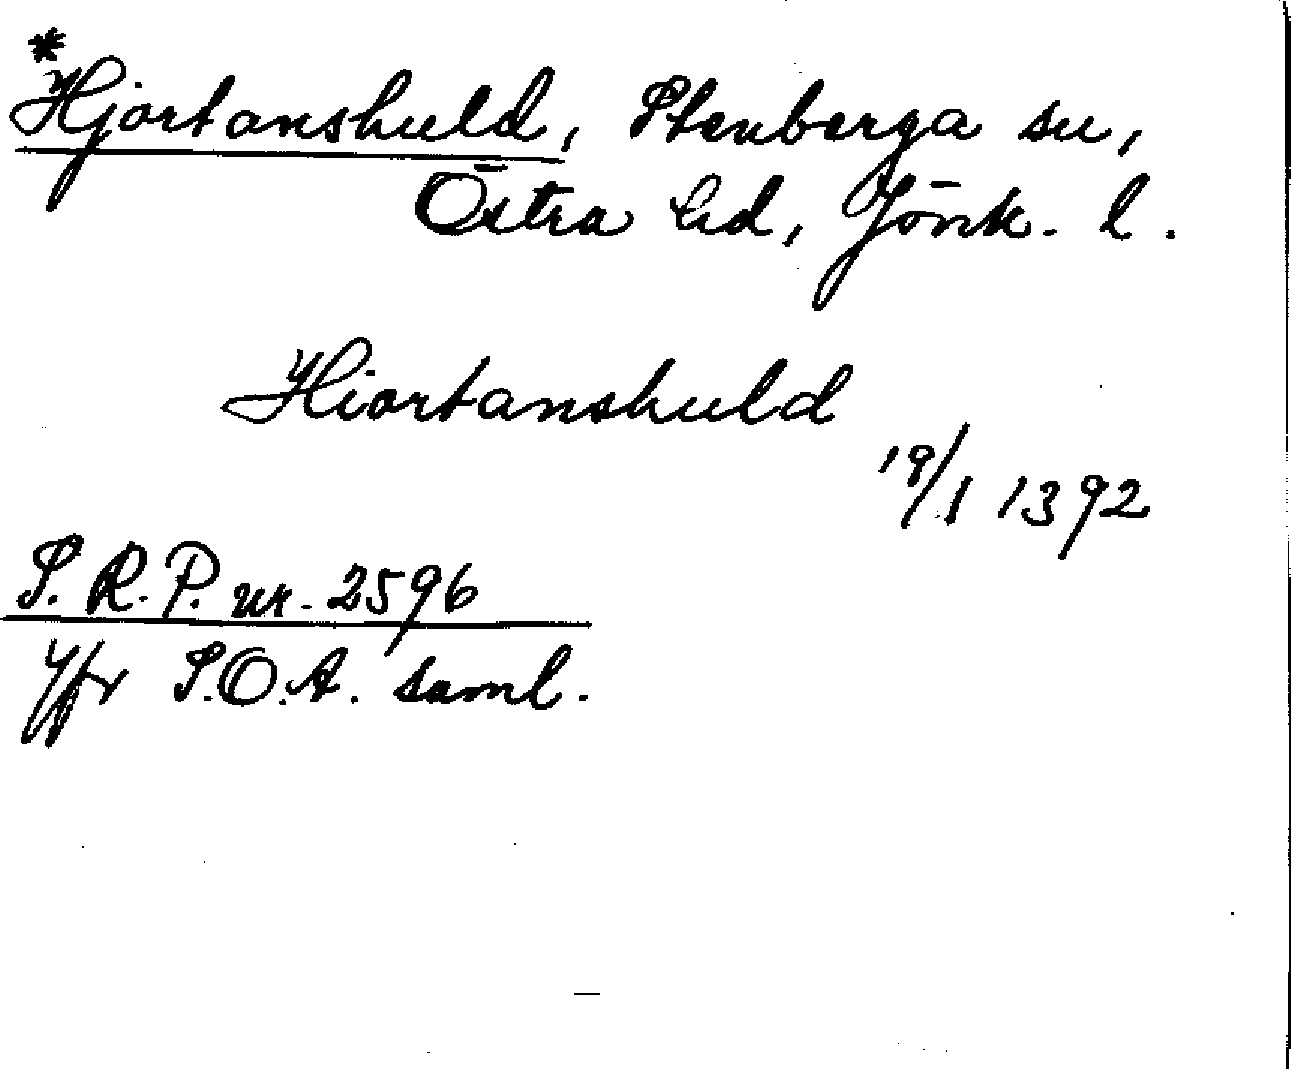 *Hjortanshuld, Stenberga sn,
Östra hd, Jönk. l.
Hiortanshuld
19/1 1392
S.R.P. nr. 2596
Jfr S.O.A. saml.